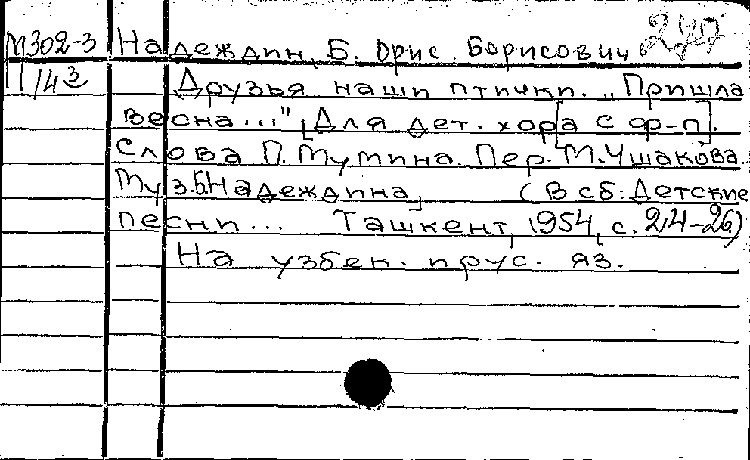 М302-3 Надеждин, Борис Борисович
11/43 Друзья наши птички. "Пришла
весна..." [Для дет. хора с ф-п].
Слова П. Мумина. Пер. М. Ушакова.
Муз. Б. Надеждина] (В сб: Детские
песни... Ташкент, 1954, с. 24-26)
На узбек. и рус. яз.